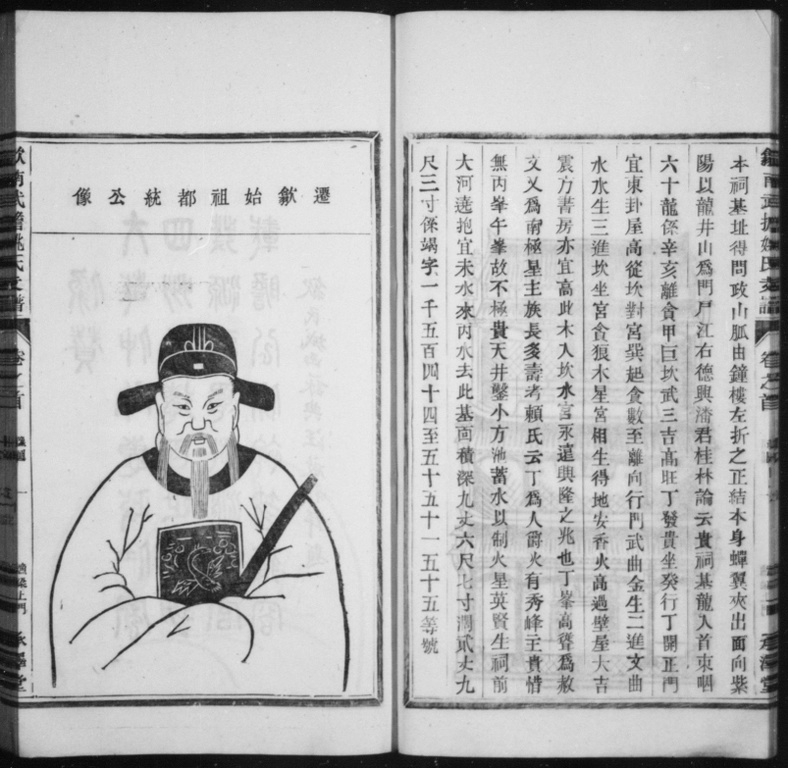 本祠基址得問政山脈由鐘樓左折之正結本身蟬翼夾出面向紫
陽以龍井山爲門戶江右德興潘君桂林論云貴祠基龍入首束咽
六十龍係辛亥離貪甲巨坎武三吉高旺丁發貴坐癸行丁開正門
宜東卦屋高從坎對宮巽起貪數至離向行門武曲金生二進文曲
水水生三進坎坐宮貪狼木星宮相生得地安香火高過壁屋大吉
震方書房亦宜高此木入坎水宮永遠興隆之兆也丁峯高聳爲赦
文又爲南極星主族長多壽考賴氏云丁爲人爵火有秀峰主貴惜
無丙峯午峯故不極貴天井鑿小方池蓄水以制火星英賢生祠前
大河遶抱宜未水來丙水去此基面積深九丈六尺七寸濶貳丈九
尺三寸係竭字一千五百四十四至五十五十一五十五等號
遷歙始祖都統公像
卷之首
承澤堂